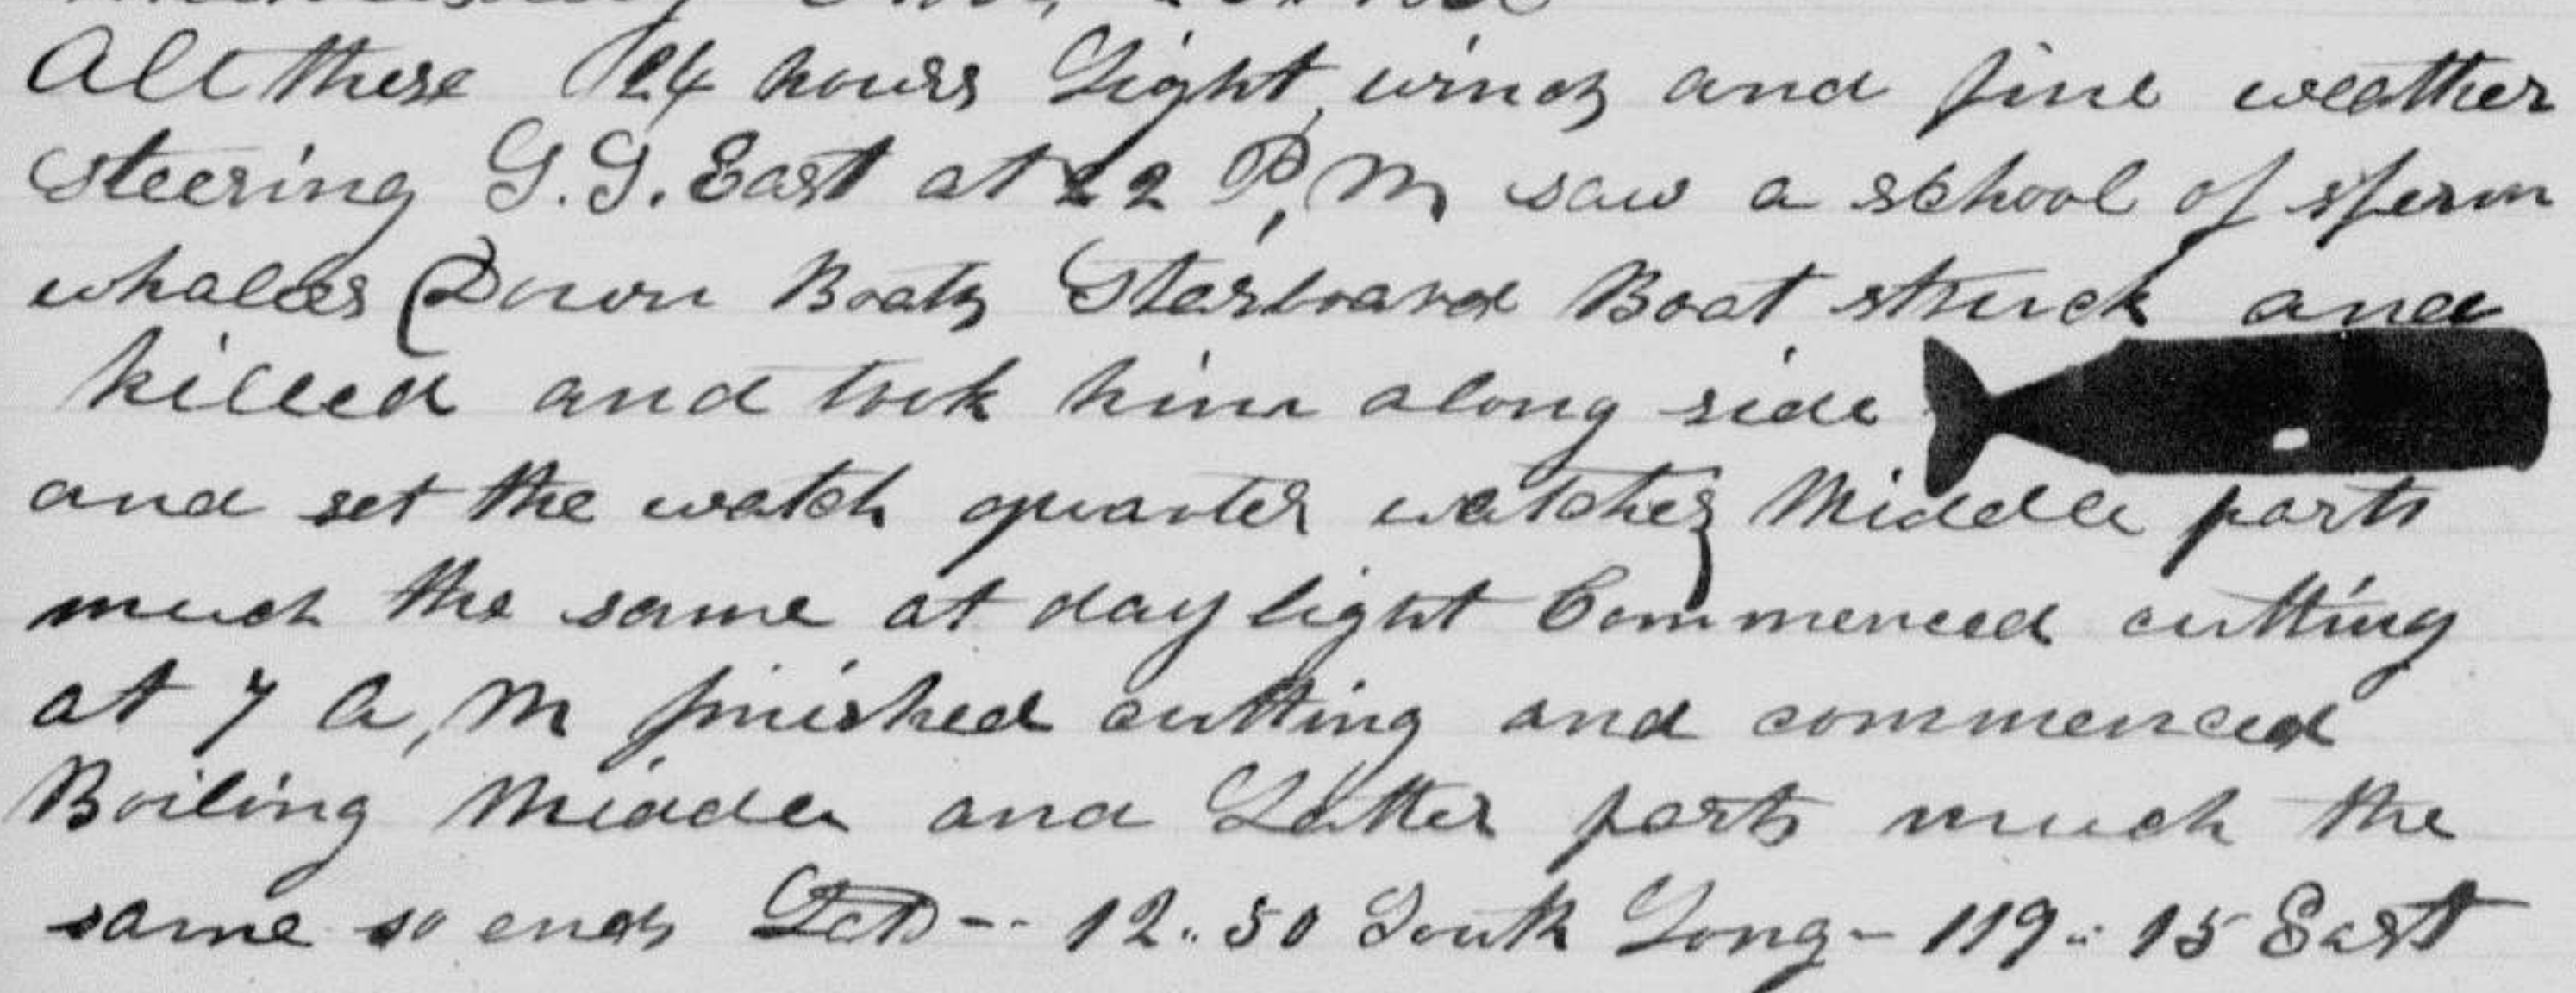 All these 24 hours Light winds and fine weather
Steering S.S. East at 2 P,M saw a school of sperm
whales Down Boats Starboard Boat struck and
killed and took him along side
and set the watch quarter watches Middle parts
much the same at day light Commenced cutting
at 7 A,M finished cutting and commenced
Boiling Middle and Latter parts much the
same so ends Lat -- 12.. 50 South Long - 119.. 15 East